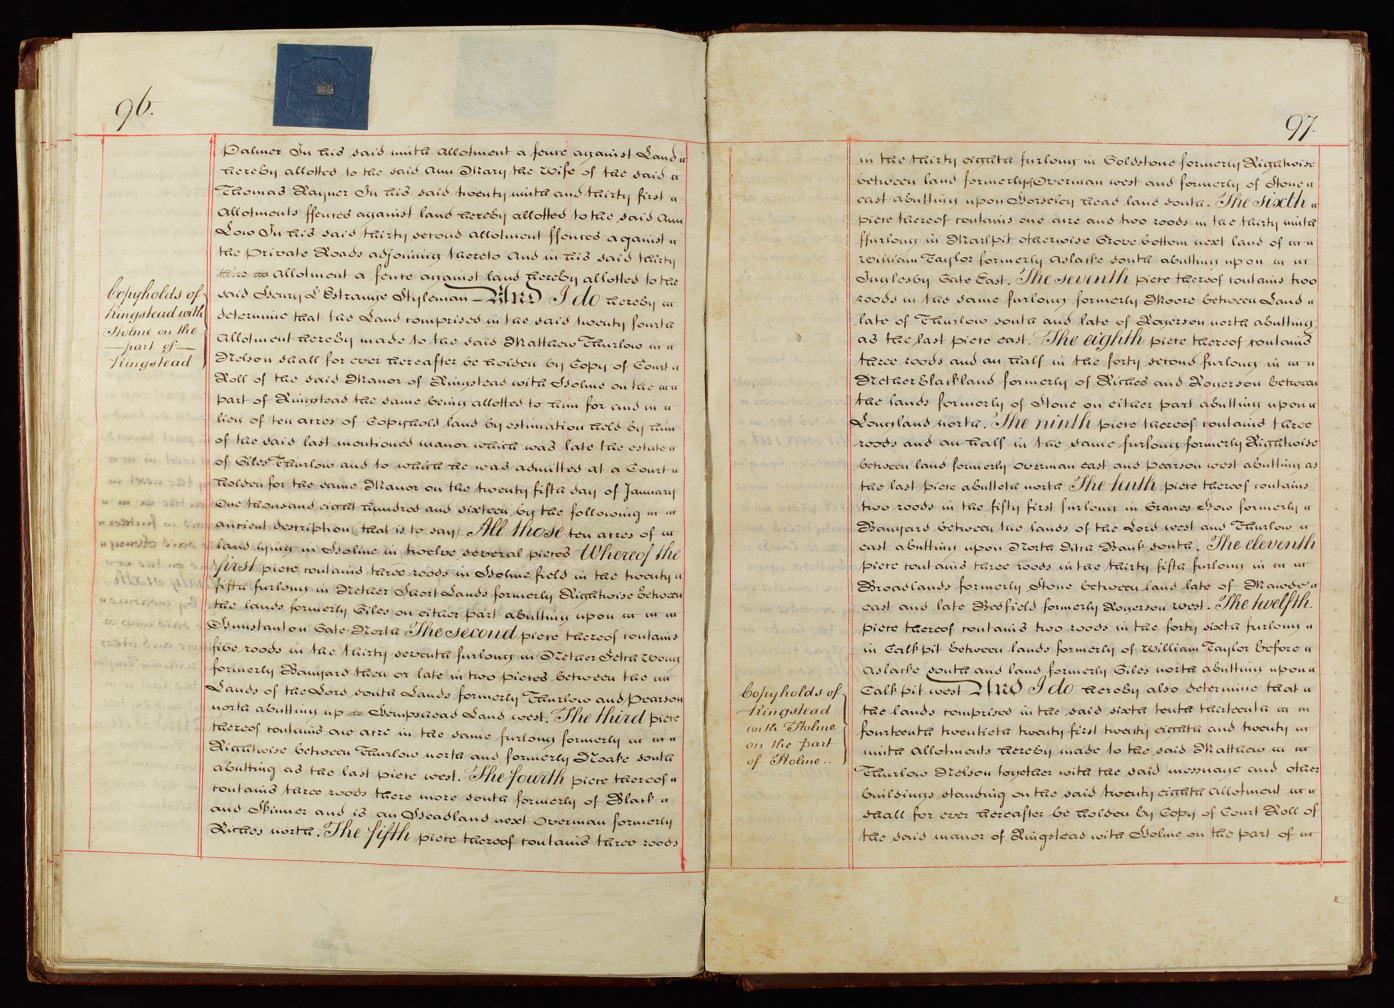 96.
Palmer In his said ninth Allotment a fence against Land
hereby allotted to the said Ann Mary the Wife of the said
Thomas Rayner In his said twenty ninth and thirty first
Allotments ffences against land hereby allotted to the said Ann
Low In his said thirty second allotment ffences against
the Private Roads adjoining thereto And in his said thirty
Allotment a fence against land hereby allotted to the
said Henry L'Estrange Styleman And I do hereby
determine that the Land comprised in the said twenty fourth
Allotment hereby made to the said Matthew Thurlow
Nelson shall for ever hereafter be holden by Copy of Court
Roll of the said Manor of Ringstead with Holme on the
part of Ringstead the same being allotted to him for and in
lieu of ten acres of Copyhold land by estimation held by him
of the said last mentioned manor which was late the estate
of Giles Thurlow and to which he was admitted at a Court
holden for the same Manor on the twenty fifth day of January
One thousand eight hundred and sixteen by the following
ancient description (that is to say) All those ten acres of
land lying in Holme in twelve several pieces Whereof the
first piece contains three roods in Holme field in the twenty
fifth furlong in Nether Short Lands formerly Rightwise between
the lands formerly Giles on either part abutting upon
Hunstanton Gate North The second piece thereof contains
five roods in the thirty seventh furlong in Nether Fetch Wong
formerly Banyard then or late in two pieces between the
Lands of the Lord south Lands formerly Thurlow and Pearson
north abutting up Hempstead Land west. The third piece
thereof contains one acre in the same furlong formerly
Rightwise between Thurlow north and formerly Noake south
abutting as the last piece west. The fourth piece thereof
contains three roods there more south formerly of Black
and Skinner and is an Headland next Overman formerly
Riches north. The fifth piece thereof contains three roods
Copyholds of
Ringstead with
Holme on the
part of
Ringstead
97.
in the thirty eighth furlong in Goldstone formerly Rightwise
between land formerly Overman west and formerly of Stone
east abutting upon head land south. The sixth
piece thereof contains one acre and two roods in the thirty ninth
ffurlong in Marlpit otherwise Grove bottom next land of
William Taylor formerly Aslacke south abutting upon
Inglesby Gate East. The seventh piece thereof contains two
roods in the same furlong formerly Moore between Land
late of Thurlow south and late of Rogerson north abutting
as the last piece east. The eighth piece thereof contains
three roods and an half in the forty second furlong in
Nether Blackland formerly of Riches and Rogerson between
the lands formerly of Stone on either part abutting upon
Longland north. The ninth piece thereof contains three
roods and an half in the same furlong formerly Rightwise
between land formerly Overman east and Pearson west abutting as
the last piece abutteth north The tenth piece thereof contains
two roods in the fifty first furlong in Cranes Gow formerly
Banyard between the lands of the Lord west and Thurlow
east abutting upon North Ditch Bank south. The eleventh
piece contains three roods in the thirty fifth furlong in
Broadlands formerly Stone between land late of
east and late Bedfield formerly Rogerson west. The twelfth
piece thereof contains two roods in the forty sixth furlong
in Calkpit between lands formerly of William Taylor before
Aslacke south and land formerly Giles north abutting upon
Calkpit west And I do hereby also determine that
the lands comprised in the said sixth tenth thirteenth
fourteenth twentieth twenty first twenty eighth and twenty
ninth Allotments hereby made to the said Matthew
Thurlow Nelson together with the said messuage and other
buildings standing on the said twenty eighth Allotment
shall for ever hereafter be holden by Copy of Court Roll of
the said manor of Ringstead with Holme on the part of
Copyholds of
Ringstead
with Holme
on the part
of Holme..